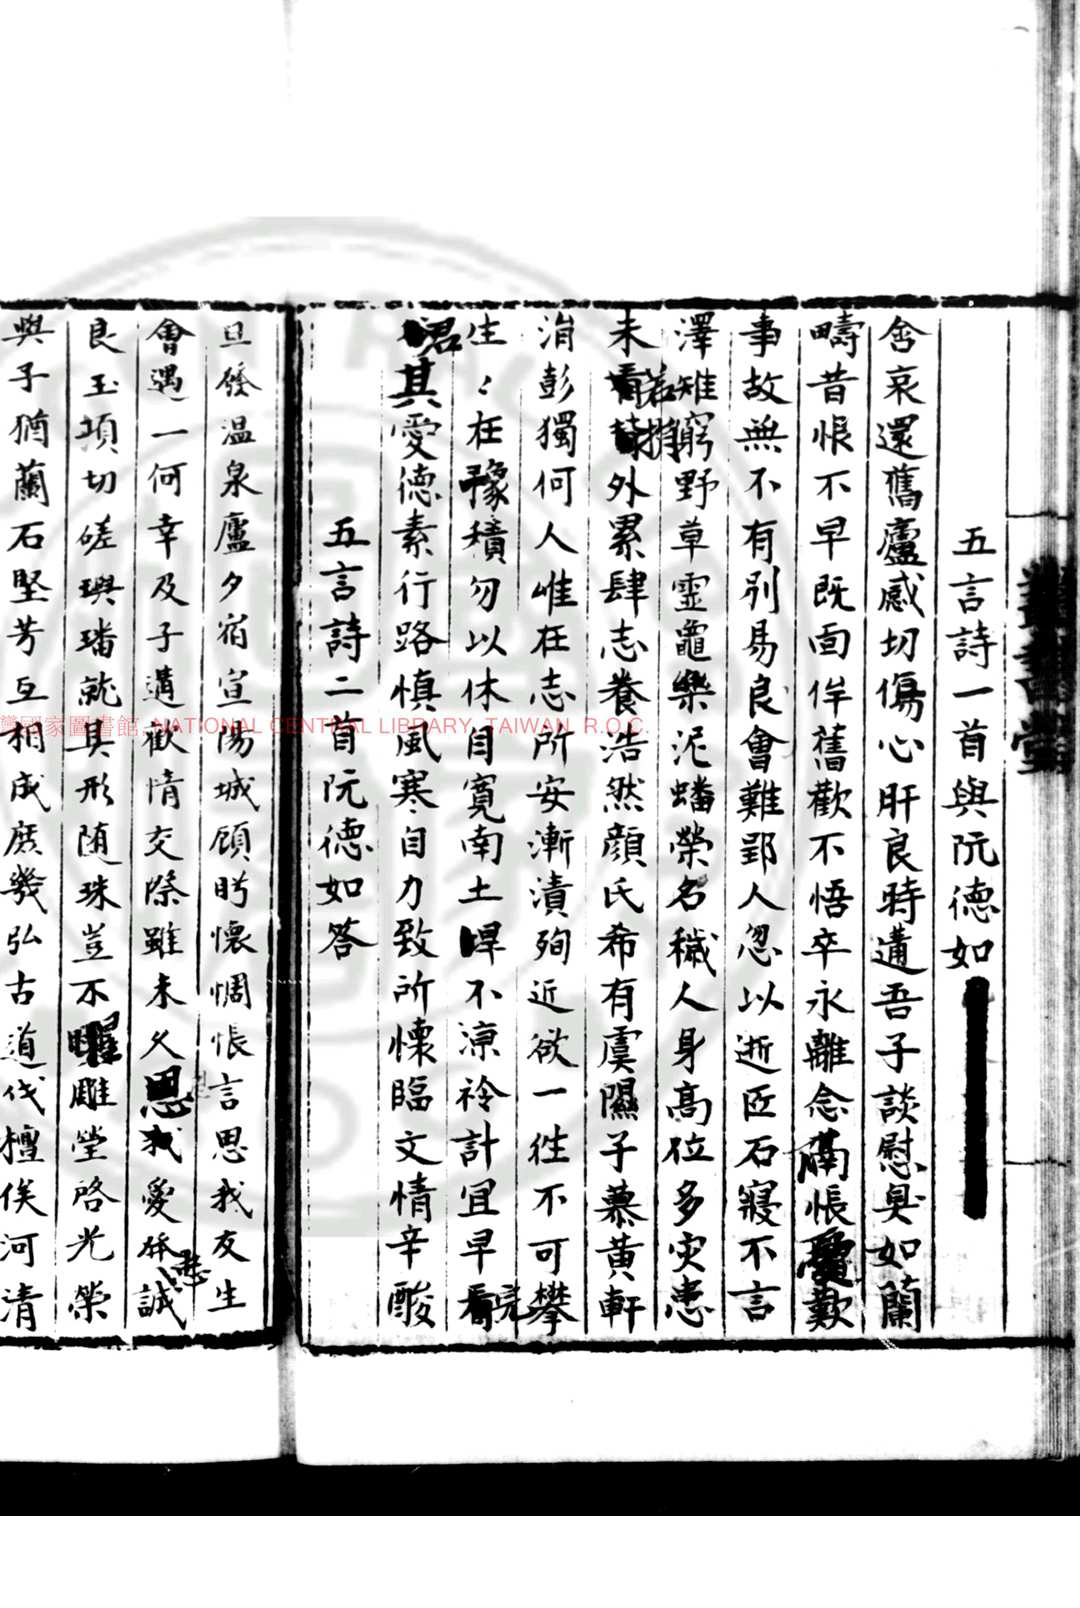 五言詩一首與阮德如
含哀還舊廬感切傷心肝良時遘吾子談慰臭如蘭
疇昔恨不早既面侔舊歡不悟卒永離念隔悵憂歎
事故無不有別易良會難郢人忽以逝匠石寢不言
澤雉窮野草靈龜樂泥蟠榮名穢人身高位多灾患
未若捐外累肆志養浩然顔氏希有虞隰子慕黃軒
涓彭獨何人唯在志所安漸漬殉近欲一往不可攀
生〻在豫積勿以休自寬南土旱不涼衿計宜早完
君其愛德素行路慎風寒自力致所懷臨文情辛酸
五言詩二首阮德如答
旦發温泉廬夕宿宣陽城顧眄懷惆悵言思我友生
會遇一何幸及子遘歡情交際雖未久思我愛發誠
良玉須切磋璵璠就其形随珠豈不曜雕瑩啓光榮
與子猶蘭石堅芳互相成庶幾弘古道伐檀俟河清
臺灣國家圖書館, NATIONAL CENTRAL LIBRARY, TAIWAN, R.O.C.